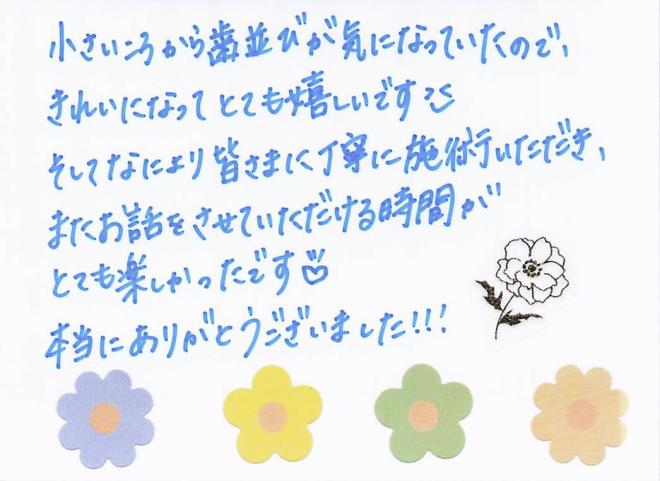 小さいころから歯並びが気になっていたので、
きれいになってとても嬉しいです
そしてなにより皆さまに丁寧に施術いただき、
またお話をさせていただける時間が
とても楽しかったです♡
本当にありがとうございました!!!